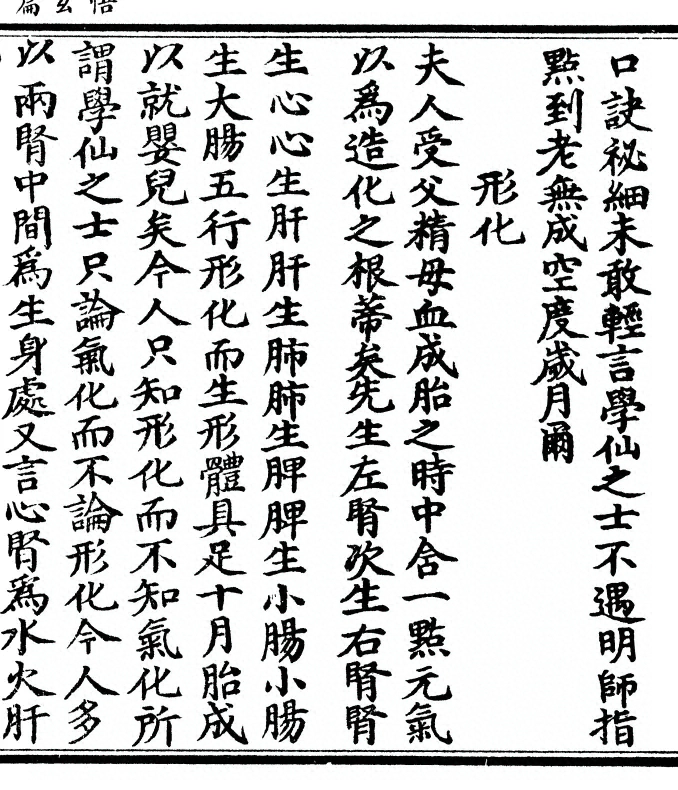 悟玄篇
口訣祕細未敢輕言學仙之士不遇明師指
點到老無成空度歲月爾
形化
夫人受父精母血成胎之時中含一點元氣
以爲造化之根蒂矣先生左腎次生右腎腎
生心心生肝肝生肺肺生脾脾生小腸小腸
生大腸五行形化而生形體具足十月胎成
以就嬰兒矣今人只知形化而不知氣化所
謂學仙之士只論氣化而不論形化今人多
以兩腎中間爲生身處又言心腎爲水火肝